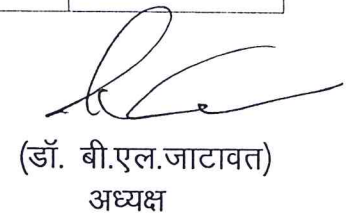 (डॉ. बी.एल.जाटावत)
अध्यक्ष